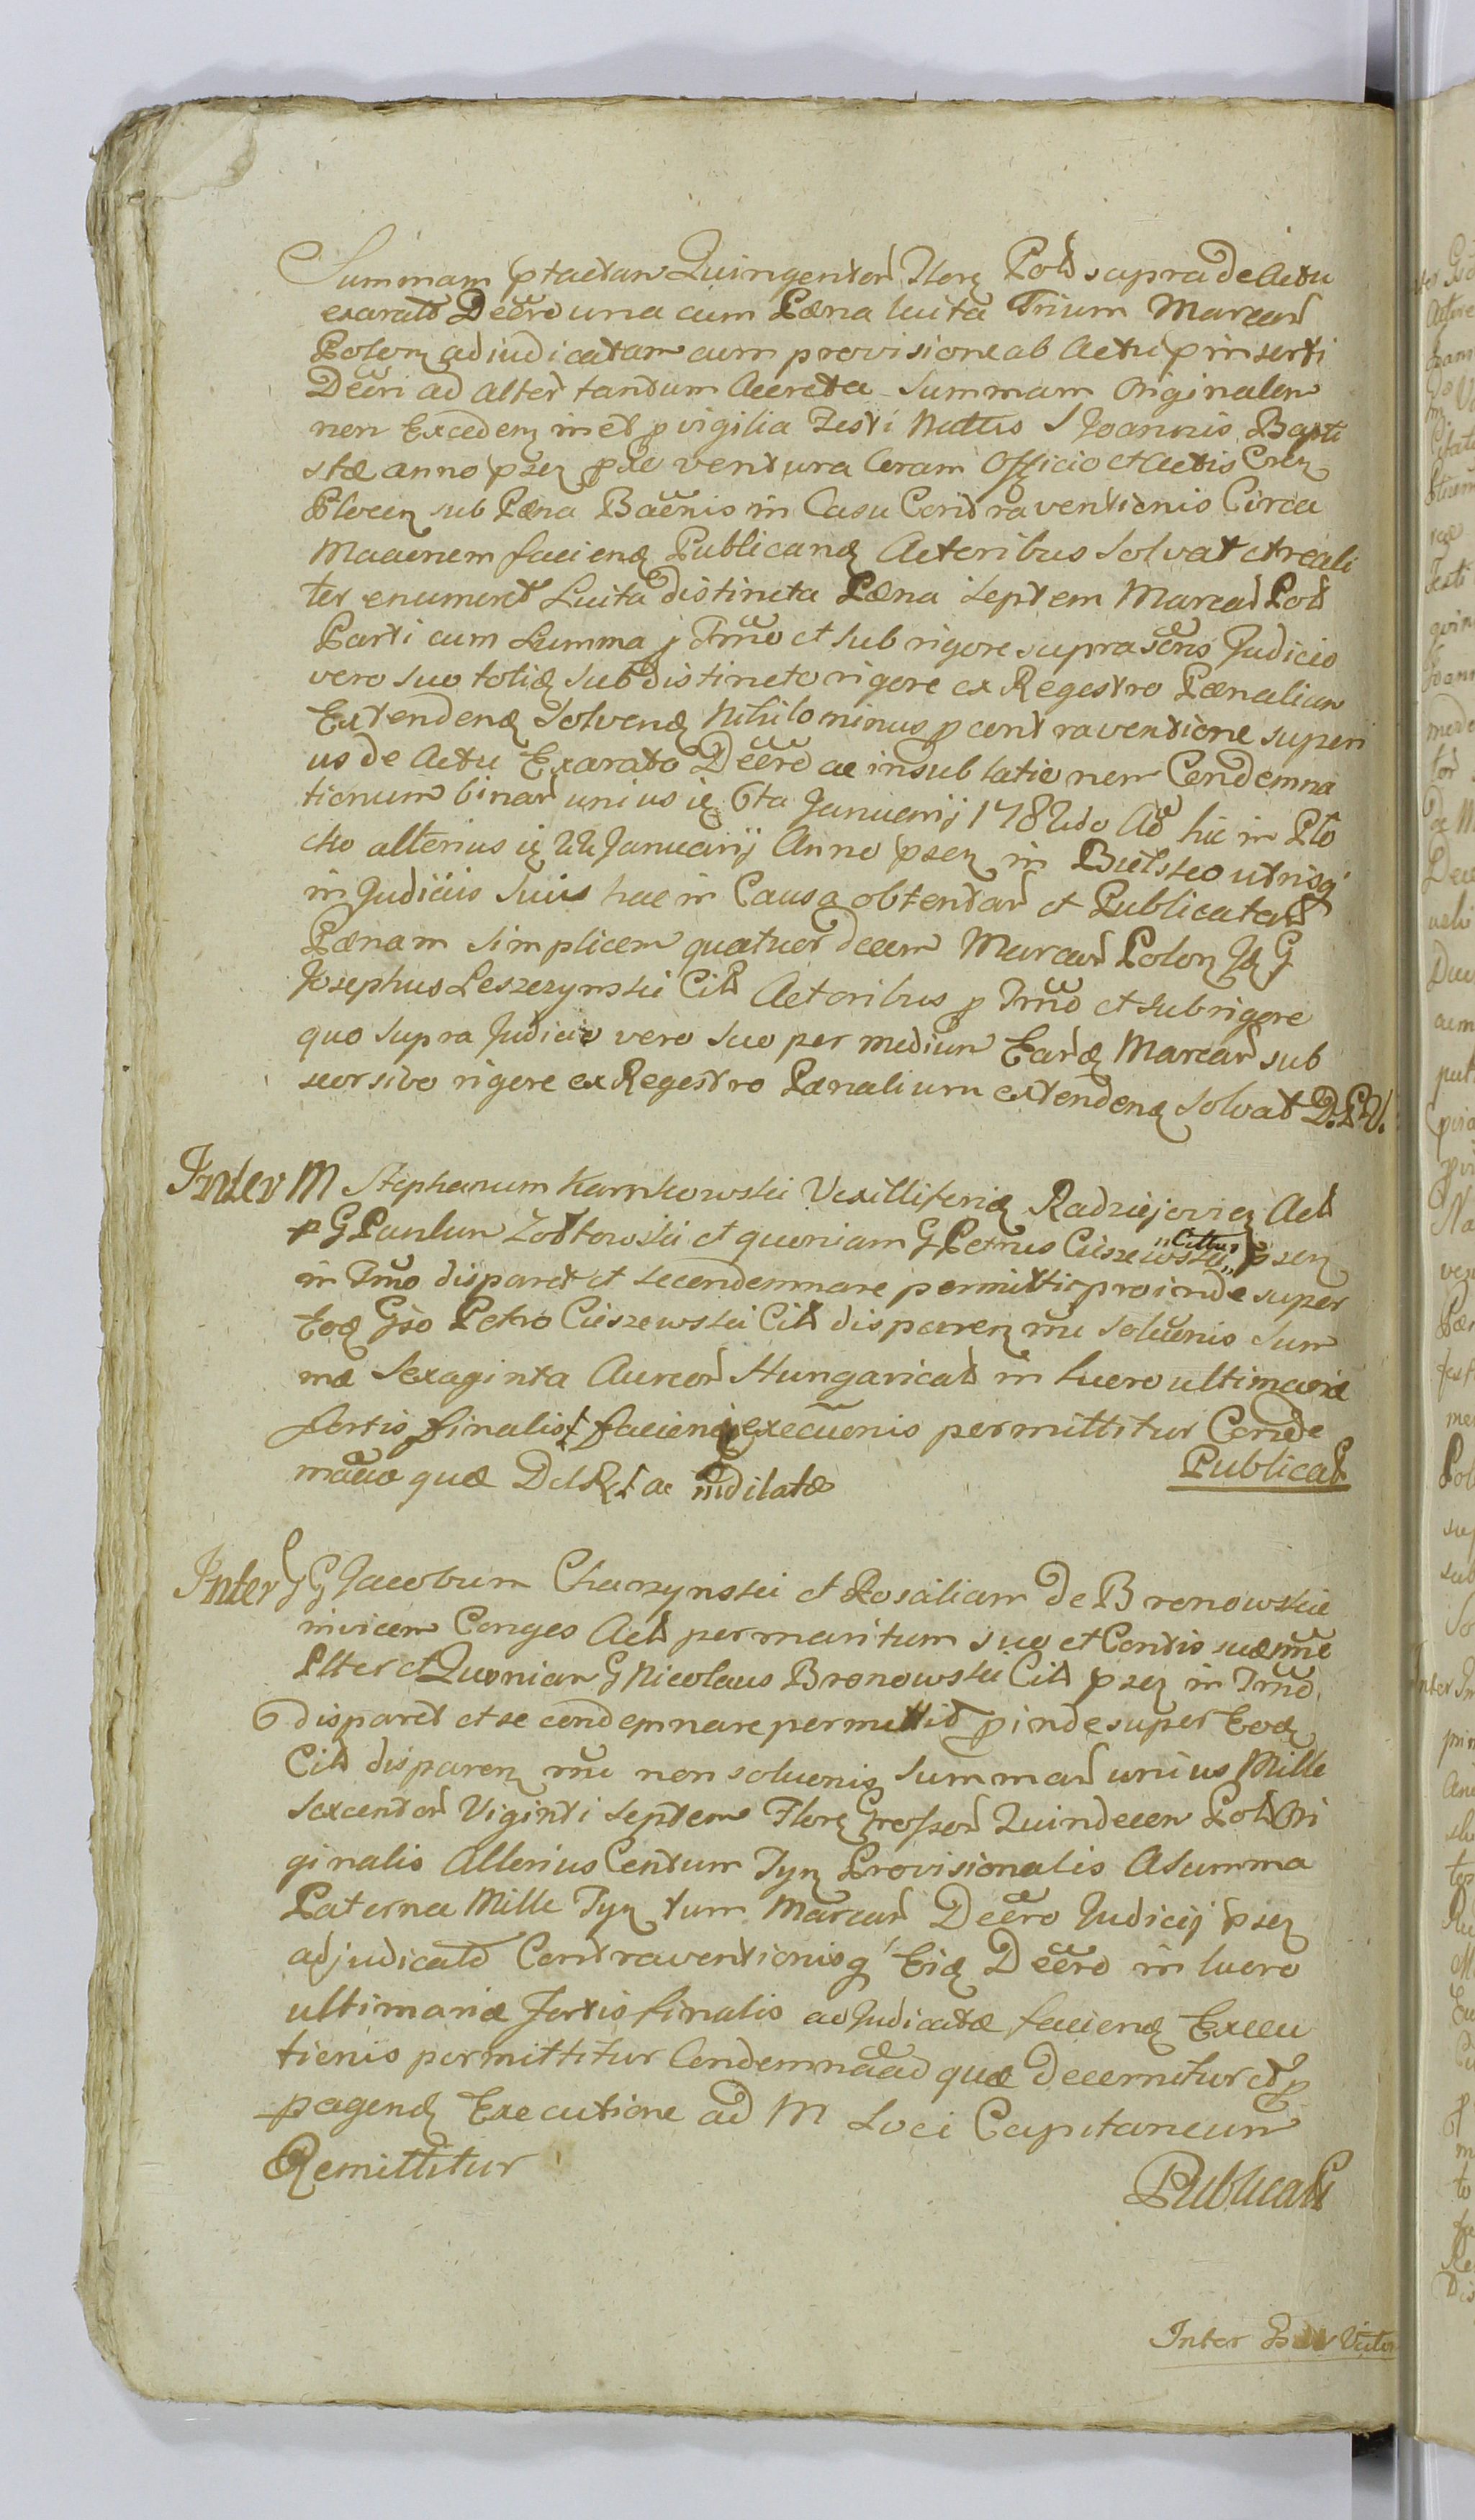 Summam ptactan Quingentor Flor Pol supra de Actu
exarato Decro una cum Pæna luita Trium Marcar
Polon adiudicatam cum provisione ab Actu p inserti
Decri ad alter tantum Accreta Summam Originalem
non Exceden in et p vigilia Festi Nattis S Joannis Bapti
stæ anno psen pxe ventura Coram Officio et Actis Cren
Plocen sub Pæna Baenis in Casu Contraventionis Circa
Maaenem faciend Publicand Actoribus Solvat et reali
ter enumeret Luita distincta Pæna Septem Marcar Pol
Parti cum Summa j Trmo et sub rigore supra scrio Judicio
vero suo totid sub distincto rigore ex Regestro Pænalium
Extendend Solvend Nihilominus p contraventione superi
us de Actu Exarato Decro ac in sublationem Condemna
tionum binar unius id 6ta Januarij 1782do Ao hic in Plo
cko alterius id 22 Januarij Anno psen in Bielsko utrisq
in Judiciis suis hac in Causa obtentar et Publicatar
Pænam simplicem quatuor decem Marcar Polon Id G
Josephus Leszczynski Citt Actoribus p Trmo et sub rigore
quo supra Judicio vero suo per medium Eard Marcar sub
seorsivo rigore ex Regestro Pænalium extendend Solvat D.P.V.
Inter M Stephanum Karnkowski Vexilliferid Radziejovien Act
p G Paulum Zołtowski et quoniam G Petrus Cieszewski "Cittus" psen
in Trmo disparet et se condemnare permittit proinde super
Eod Gso Petro Cieszewski Citt disparen rne Soluenis Sum
mæ Sexaginta Aureor Hungarical in lucro ultimariæ
sortis finalis faciend execuonis permittitur Conde
mnaao quæ Del ac indilatæ
Publicat
Inter GG Jacobum Charzynski et Rosaliam de Bronowskie
invicem Conges Act per maritum suo et Contis suæ nne
Ptter et Quoniam G Nicolaus Bronowski Citt psen in Trmo
disparet et se condemnare permittit pinde super Eod
Citt disparen rne non soluenis Summar unius Mille
Sexcentor Viginti Septem Flor Grossor Quindecem Pol Ori
ginalis Alterius Centum Tyn Provisionalis A Summa
Paterna Mille Tyn tum Marcar Decro Judicij psen
adjudicato Contraventionisq Eid Decro in lucro
ultimariæ Sortis finalis adjudicatæ faciend Execu
tionis permittitur Condemnaao quæ decernitur et p
pagend Executione ad M Loci Capitaneum
Remittitur
Publicat
Inter